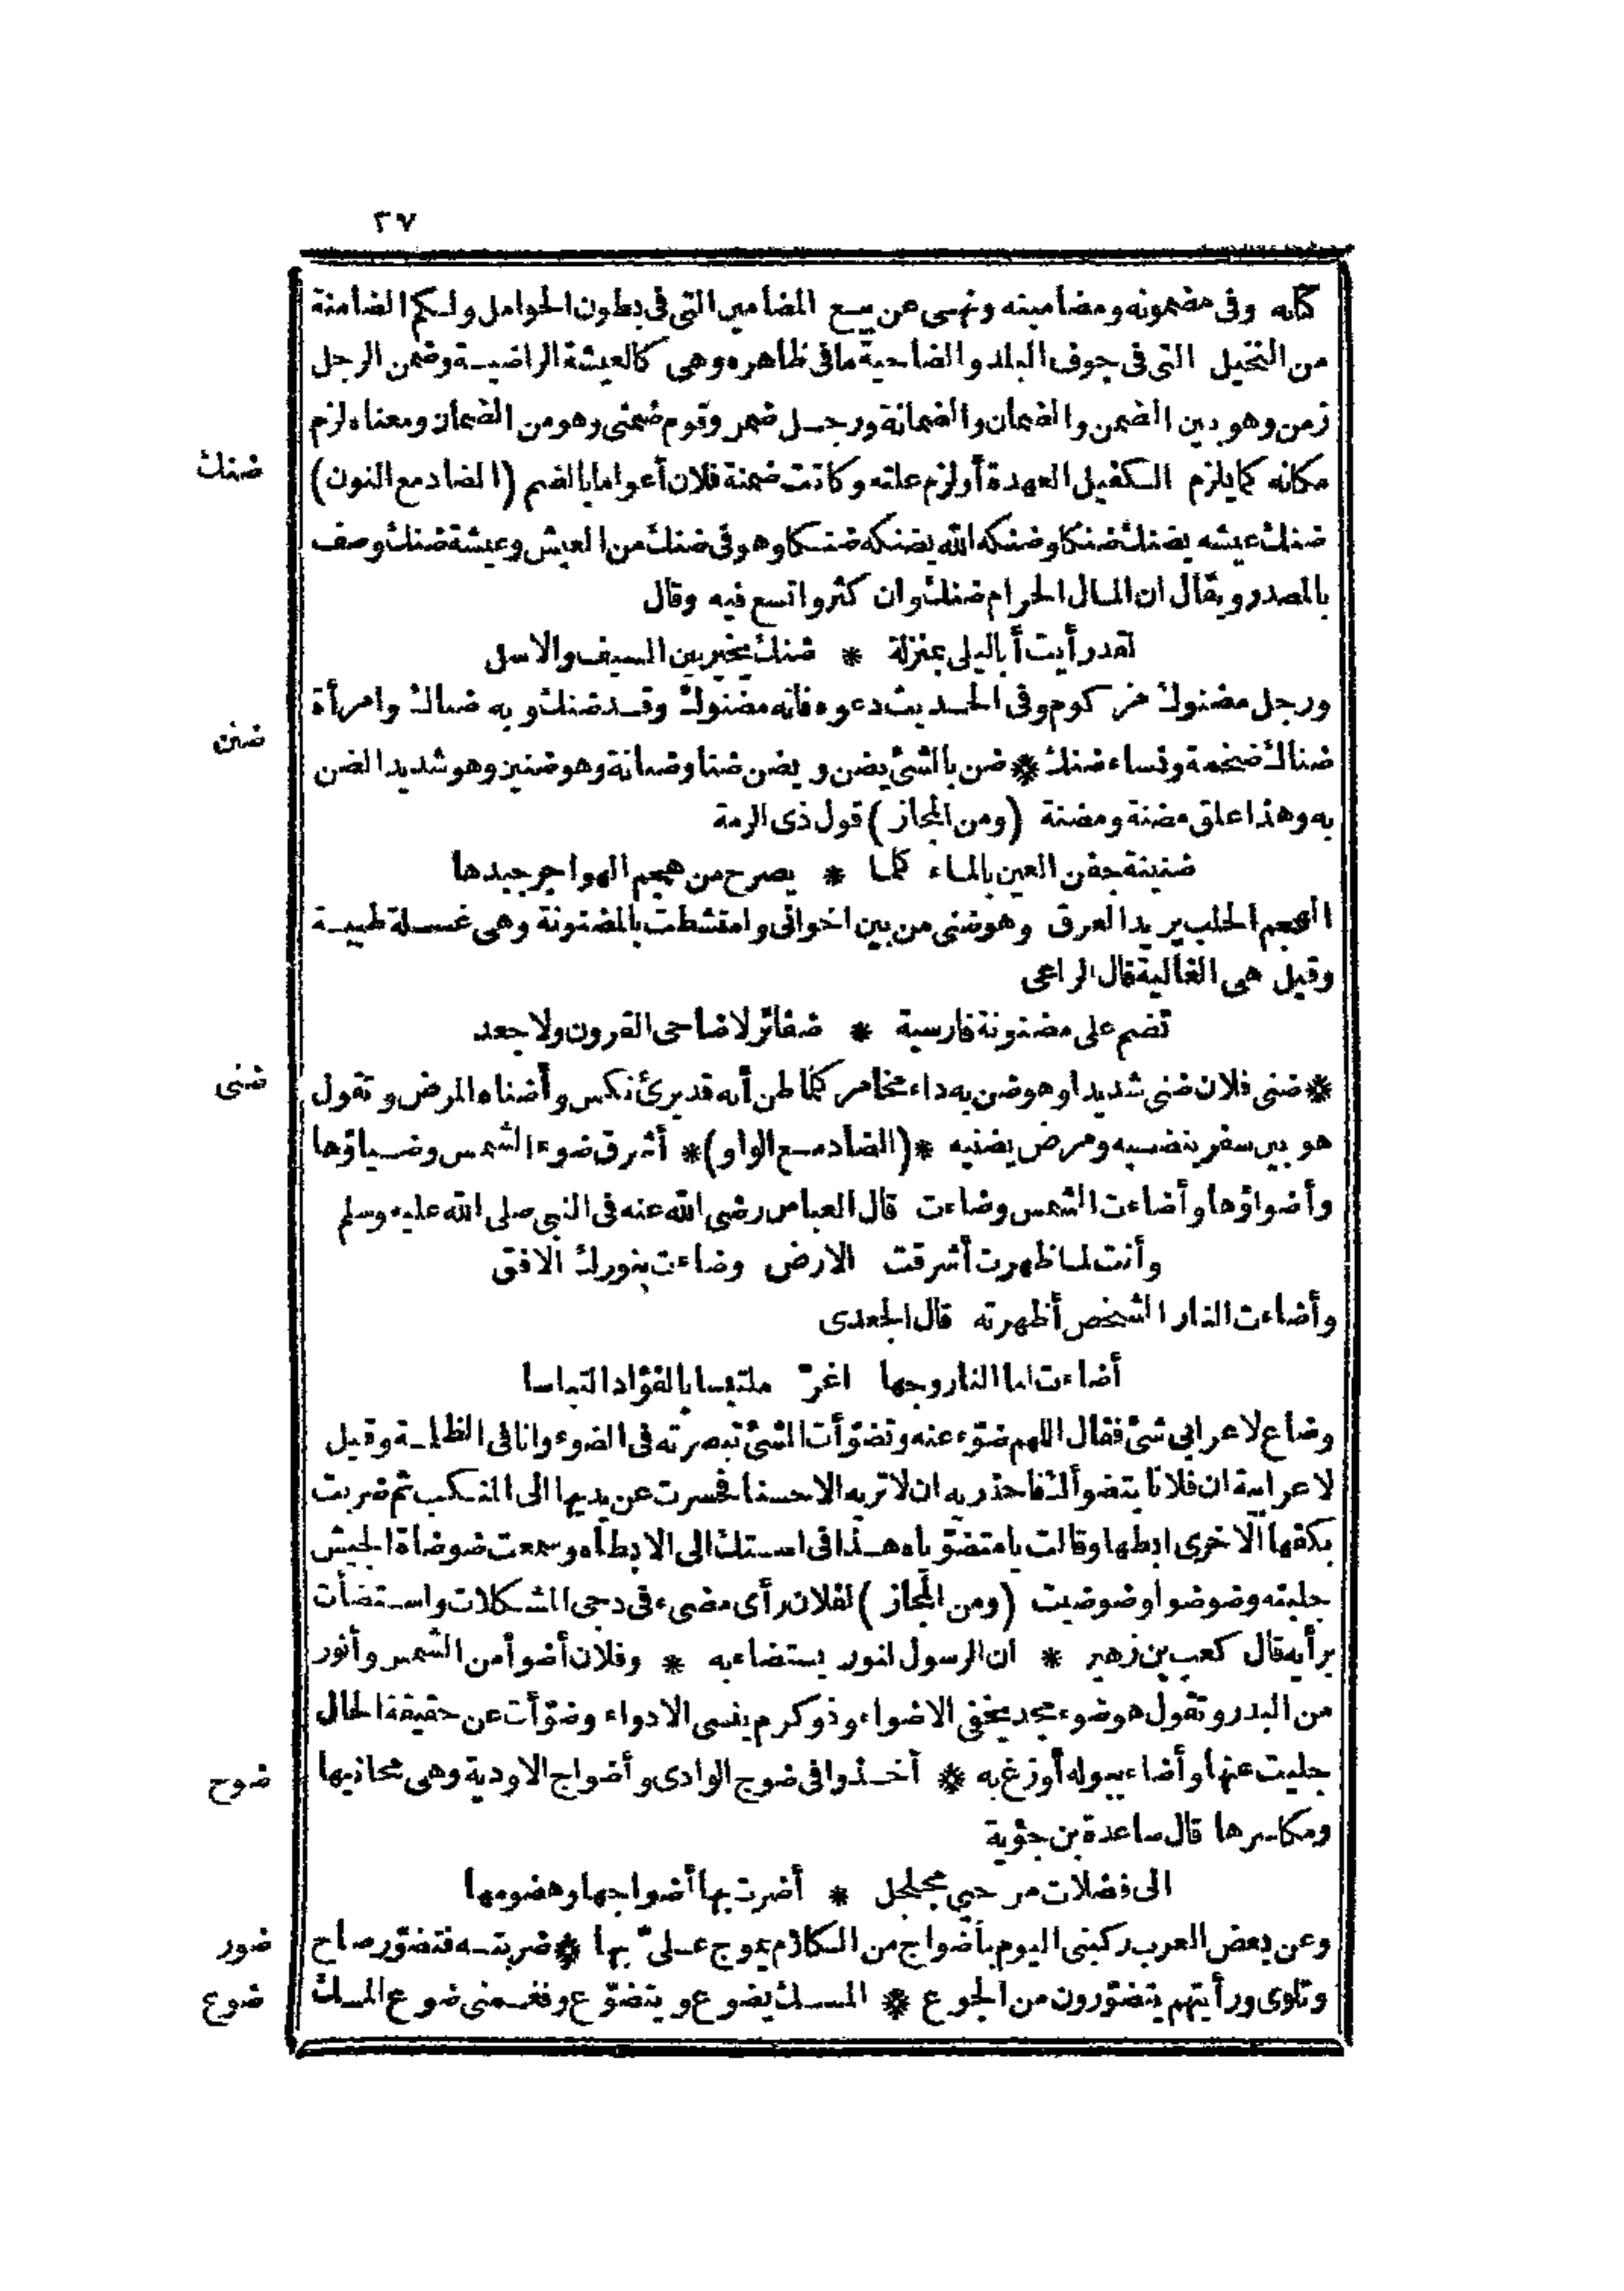 ٢٧
كتابه وفى مضمونه ومضامينه ونهى عن بيع المضامين التى فى بطون الحوامل ولكم الضامنة
من النخيل التى فى جوف البلد والضاحية ما فى ظاهره وهى كالعيشة الراضية وضمن الرجل
زمن وهو بين الضمن والضمان والضمانة ورجل ضمن وقوم ضمنى وهو من الضمان ومعناه لزم
مكانه كما يلزم الكفيل العهدة أو لزم علته وكانت ضمنة فلان أعواما بالضم (الضاد مع النون)
ضنك
ضنك عيشه يضنك ضنكا وضنكه الله يضنكه ضنكا وهو فى ضنك من العيش وعيشة ضنك وصف
بالمصدر ويقال ان المال الحرام ضنك وان كثر واتسع فيه وقال
لقد رأيت أبا ليلى بمنزلة * ضنك يخير بين السيف والاسل
ورجل مضنوك مزكوم وفى الحديث دعوه فانه مضنوك وقد ضنك وبه ضناك وامرأة
ضناك ضخمة ونساء ضنك * ضن بالشئ يضن ويضن ضنا وضنانة وهو ضنين وهو شديد الضن
ضنن
به وهذا علق مضنة ومضنة (ومن المجاز) قول ذى الرمة
ضنينة جفن العين بالماء كلما * يصرح من هجم الهواجر جيدها
الهجم الحلب يريد العرق وهو ضنى من بين اخوانى وامتشطت بالمضنونة وهى غسلة طيبة
وقيل هى الغالية قال الراعى
تضم على مضنونة فارسية * ضفائر لا ضاحى القرون ولا جعد
* ضنى فلان ضنى شديدا وهو ضن به داء مخامر كلما ظن أنه قد برئ نكس وأضناه المرض وتقول
ضنى
هو بين سفر ينضيه ومرض يضنيه *(الضاد مع الواو)* أشرق ضوء الشمس وضياؤها
وأضواؤها وأضاءت الشمس وضاءت قال العباس رضى الله عنه فى النبى صلى الله عليه وسلم
وأنت لما ظهرت أشرقت الارض وضاءت بنورك الافق
وأضاءت النار الشخص أظهرته قال الجعدى
أضاءت لنا النار وجها اغرّ ملتبسا بالفؤاد التباسا
وضاع لاعرابى شئ فقال اللهم ضوّء عنه وتضوّأت الشئ تبصرته فى الضوء وانا فى الظلمة وقيل
لاعرابية ان فلانا يتضوألك فاحذريه ان لا تريه الا حسنا فحسرت عن يديها الى المنكب ثم ضربت
بكفها الاخرى ابطها وقالت يا متضوّياه هذا فى استك الى الابطاه وسمعت ضوضاة الجيش
جلبته وضوضوا وضوضيت (ومن المجاز) لفلان رأى مضىء فى دجى المشكلات واستضأت
برأيه قال كعب بن زهير * ان الرسول لنور يستضاء به * وفلان أضوأ من الشمس وأنور
من البدر وتقول هو ضوء مجد يخفى الاضواء وذو كرم ينسى الادواء وضوّأت عن حقيقة الحال
جليت عنها وأضاء ببوله أوزغ به * أخذوا فى ضوج الوادى وأضواج الاودية وهى محانيها
ضوح
ومكاسرها قال ساعدة بن جؤية
الى فضلات من حبي مجلجل * أضرت بها أضواجها وهضومها
وعن بعض العرب ركبنى اليوم بأضواج من الكلام يموج علىّ بها * ضربته فتضوّر صاح
ضور
وتلوى ورأيتهم يتضوّرون من الجوع * المسك يضوع ويتضوّع وفغمنى ضوع المسك
ضوع